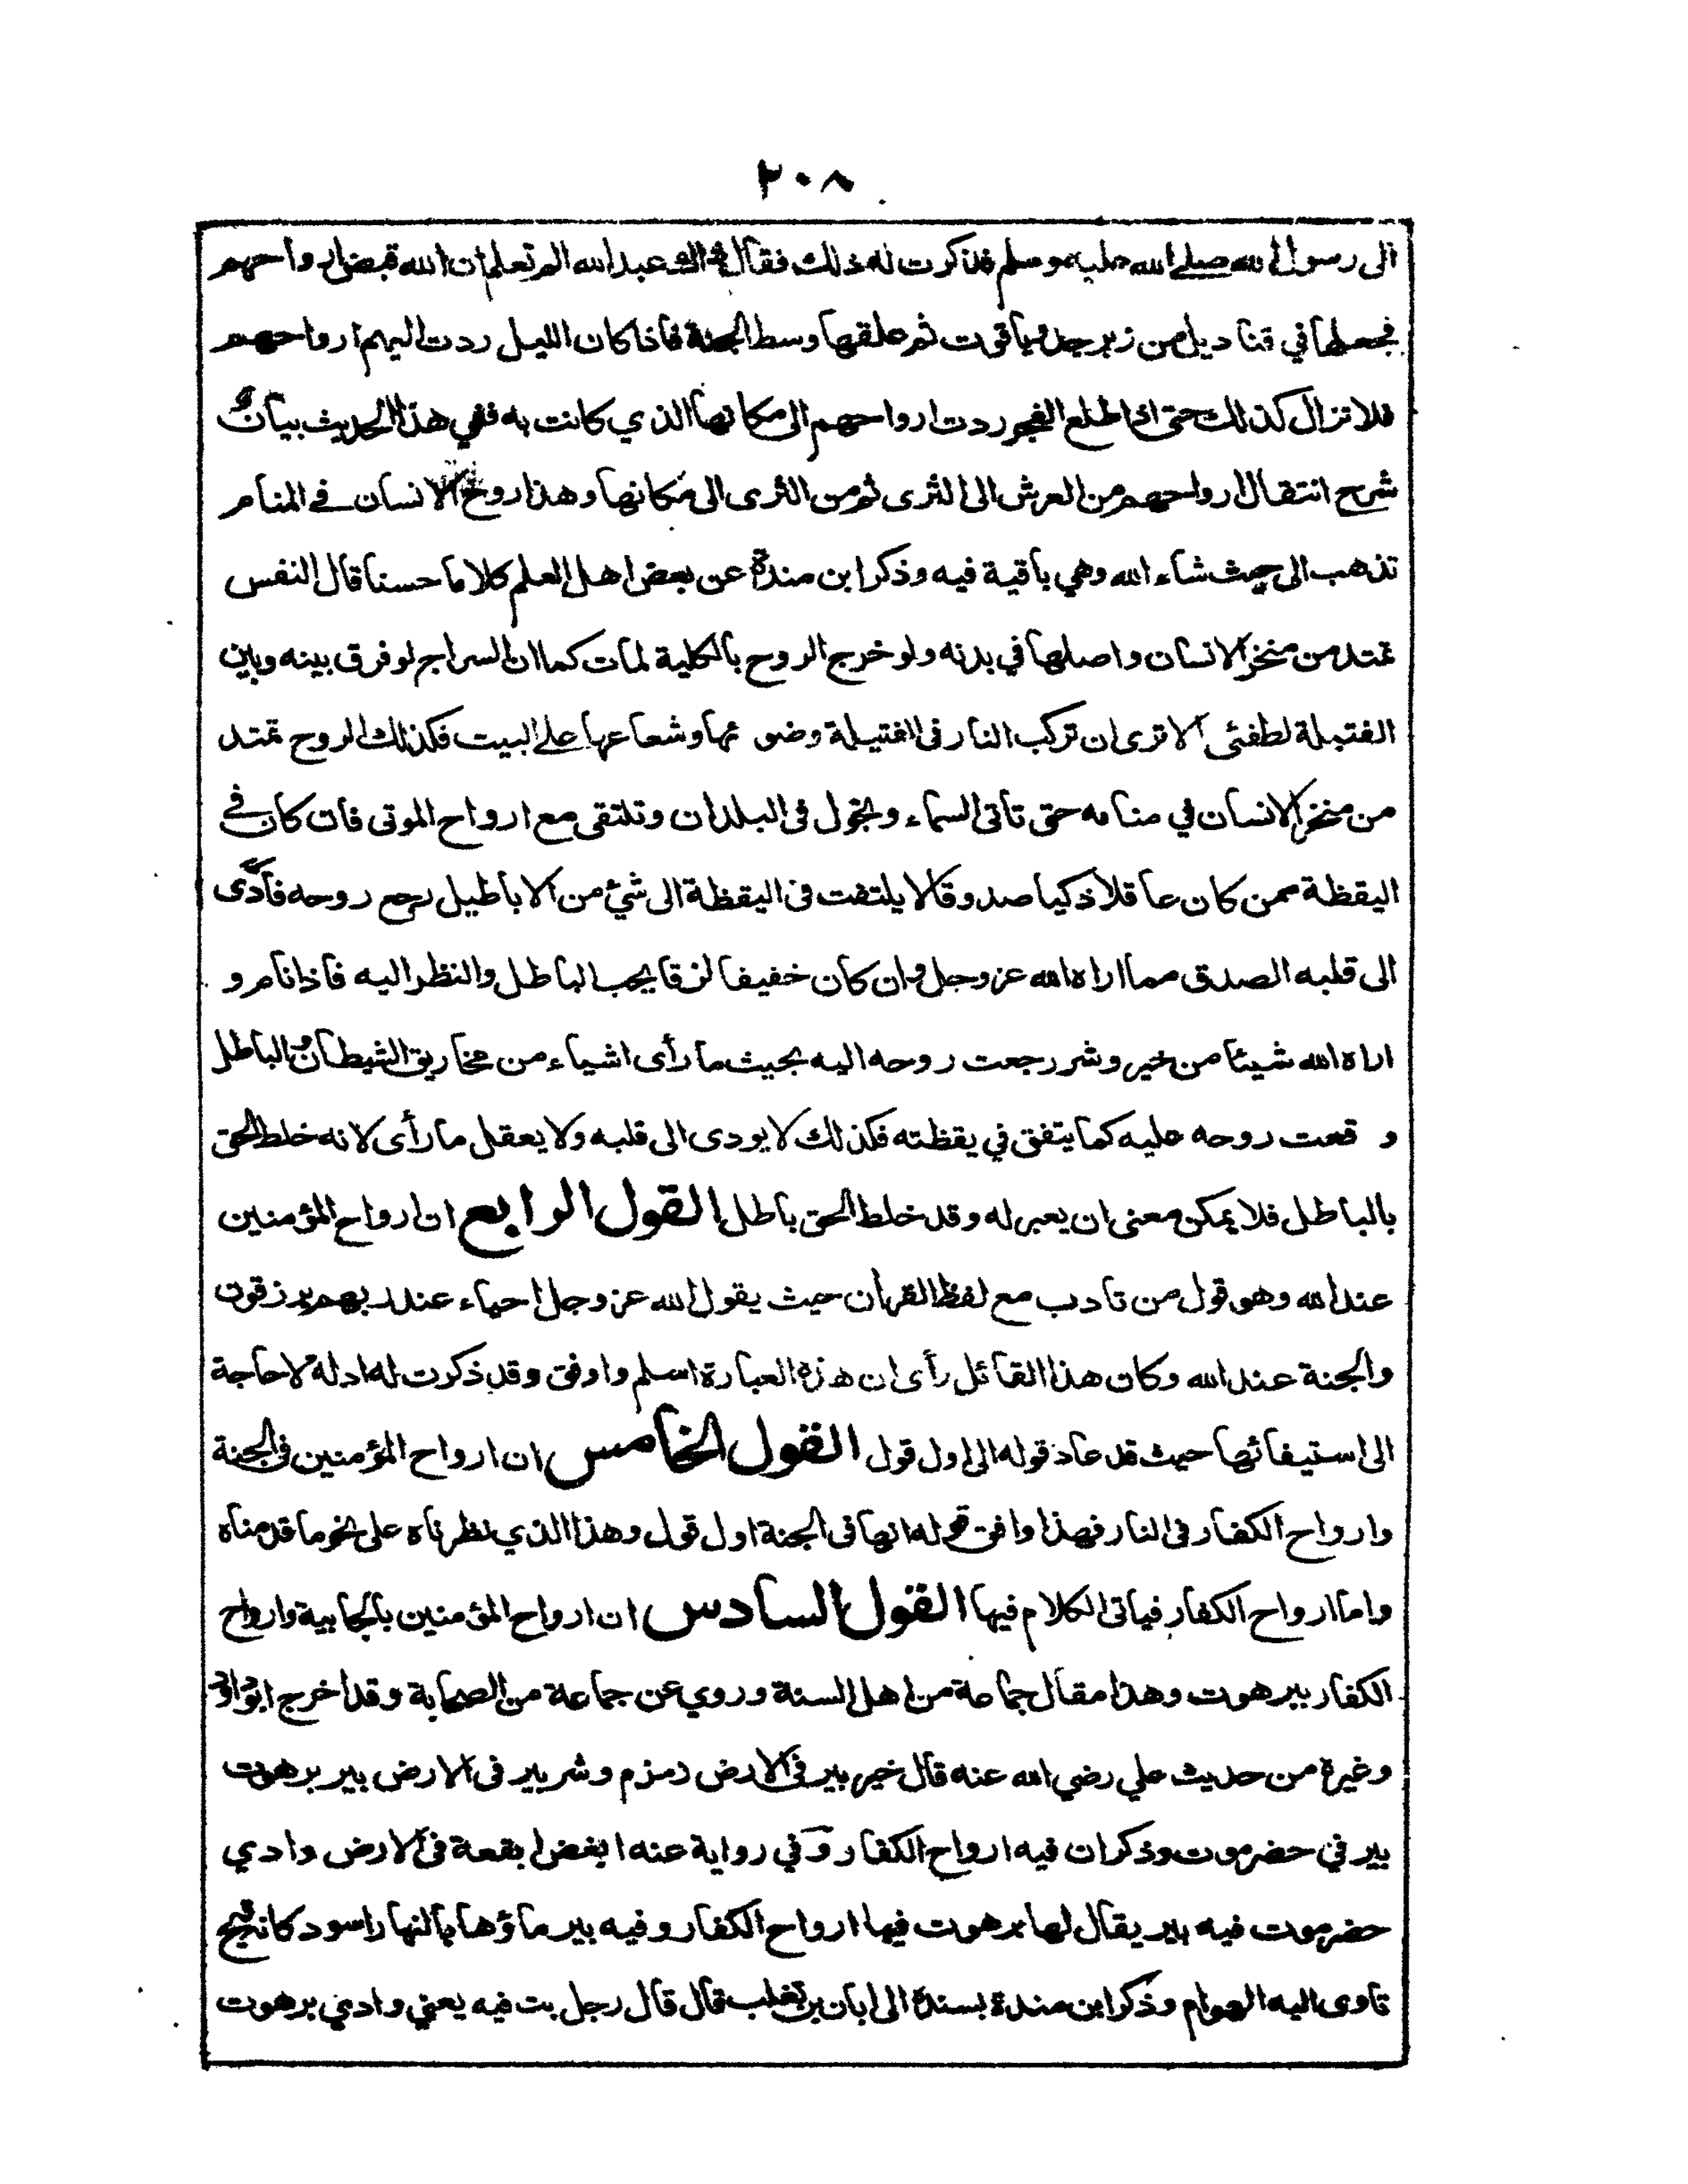 ٢٠٨
الى رسول الله صلى الله عليه وسلم فذكرت له ذلك فقال عبد الله الم تعلم ان الله قبض ارواحهم
فجعلها في قناديل من زبرجد وياقوت ثم علقها وسط الجنة فاذا كان الليل ردت اليهم ارواحهم
فلا تزال كذلك حتى اذا طلع الفجر ردت ارواحهم الى مكانها الذي كانت به ففي هذا الحديث بيان
شرح انتقال ارواحهم من العرش الى الثرى ثم من الثرى الى مكانها وهذا روح الانسان في المنام
تذهب الى حيث شاء الله وهي باقية فيه وذكر ابن مندة عن بعض اهل العلم كلاما حسنا قال النفس
تمتد من منخر الانسان واصلها في بدنه ولو خرج الروح بالكلية لمات كما ان السراج لو فرق بينه وبين
الفتيلة لطفئى الا ترى ان تركب النار فى الفتيلة وضوءها وشعاعها على البيت فكذلك الروح تمتد
من منخر الانسان في منامه حتى تأتى السماء وتجول فى البلدان وتلتقى مع ارواح الموتى فان كان في
اليقظة ممن كان عاقلا ذكيا صدوقا لا يلتفت فى اليقظة الى شيء من الاباطيل رجع روحه فادّى
الى قلبه الصدق مما اراه الله عز وجل وان كان خفيفا نزقا يحب الباطل والنظر اليه فاذا نام و
اراه الله شيئا من خير وشر رجعت روحه اليه بحيث ما رأى اشياء من مخاريق الشيطان والباطل
و قعت روحه عليه كما يتفق في يقظته فكذلك لا يودى الى قلبه ولا يعقل ما رأى لانه خلط الحق
بالباطل فلا يمكن معنى ان يعبر له وقد خلط الحق باطل القول الرابع ان ارواح المؤمنين
عند الله وهو قول من تادب مع لفظ القران حيث يقول الله عز وجل احياء عند ربهم يرزقون
والجنة عند الله وكان هذا القائل رأى ان هذه العبارة اسلم واوفق وقد ذكرت له ادلة لا حاجة
الى استيفائها حيث قد عاد قوله الى اول قول القول الخامس ان ارواح المؤمنين فى الجنة
وارواح الكفار فى النار فهذا وافق قوله انها فى الجنة اول قول وهذا الذي نظرناه على نحو ما قدمناه
واما ارواح الكفار فياتى الكلام فيها القول السادس ان ارواح المؤمنين بالجابية وارواح
الكفار ببرهوت وهذا مقال جماعة من اهل السنة وروي عن جماعة من الصحابة وقد اخرج ابو داود
وغيرة من حديث علي رضي الله عنه قال خير بير فى الارض زمزم وشر بير فى الارض بير برهوت
بير في حضرموت وذكر ان فيه ارواح الكفار وفي رواية عنه ابغض بقعة فى الارض وادي
حضرموت فيه بير يقال لها برهوت فيها ارواح الكفار وفيه بير ماؤها بالنهار اسود كانه قيح
تأوى اليه الهوام وذكر ابن مندة بسندة الى ابان بن تغلب قال قال رجل بت فيه يعني وادي برهوت